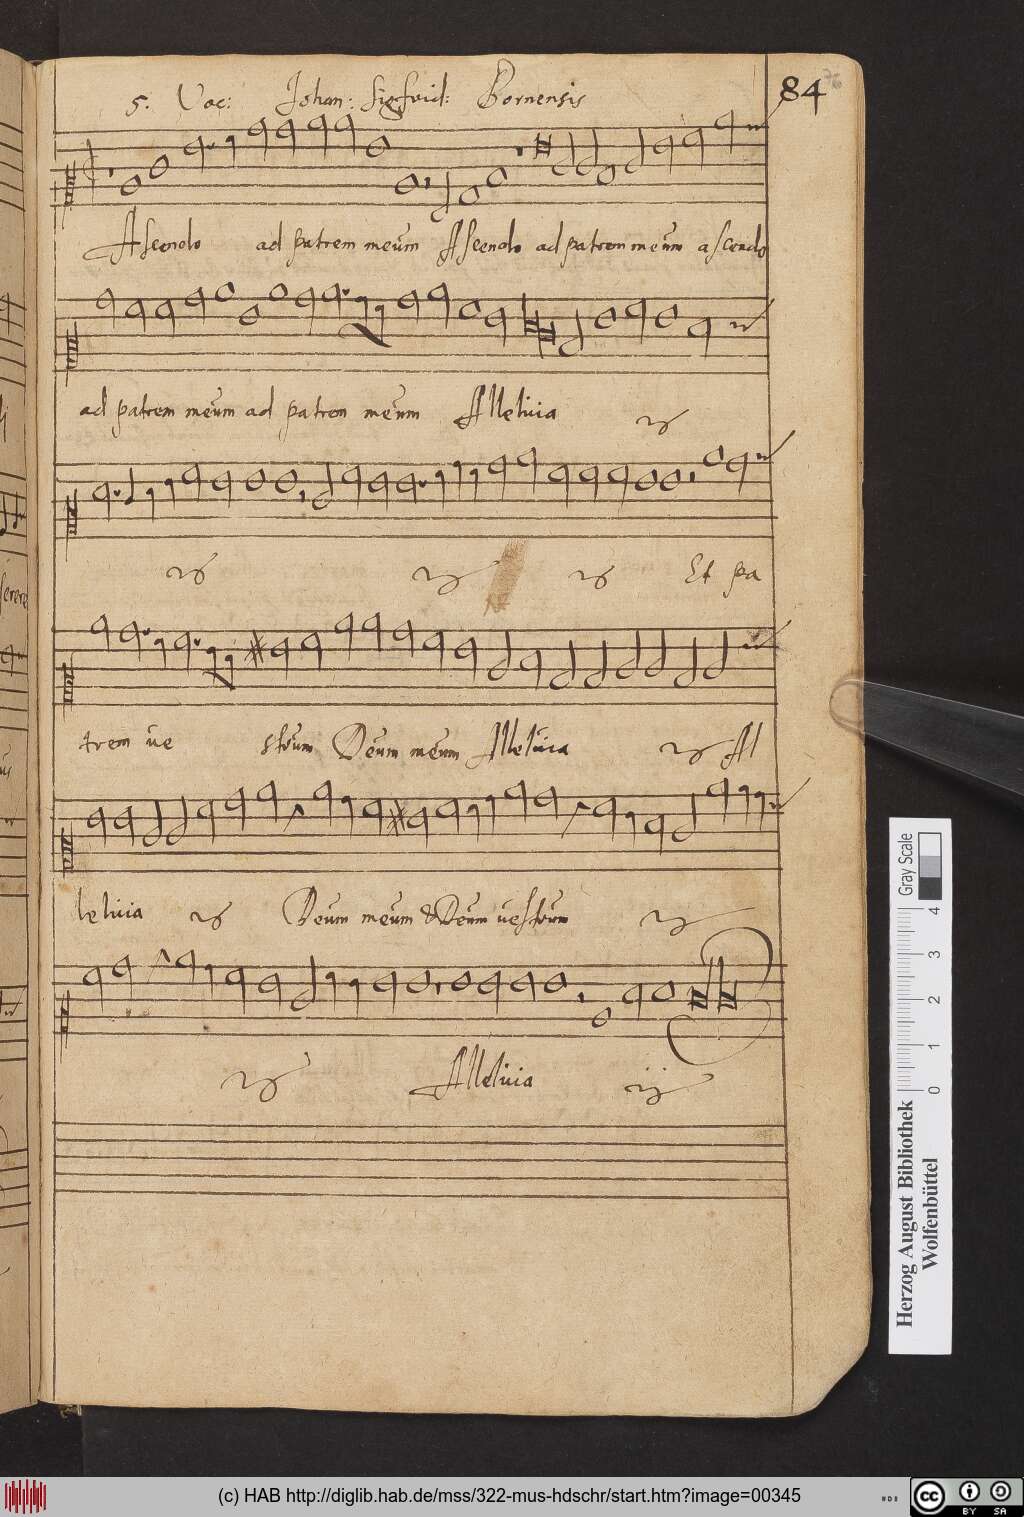 5. Voc: Johan: Sigfrid: Bornensis
84
Ascendo ad patrem meum Ascendo ad patrem meum ascendo
ad patrem meum ad patrem meum Alleluia ij
ij ij ij Et pa
trem ve strum Deum meum Alleluia ij Al
leluia ij Deum meum & Deum vestrum ij
ij Alleluia ij
Gray Scale
0 1 2 3 4
Herzog August Bibliothek
Wolfenbüttel
(c) HAB http://diglib.hab.de/mss/322-mus-hdschr/start.htm?image=00345
cc BY SA